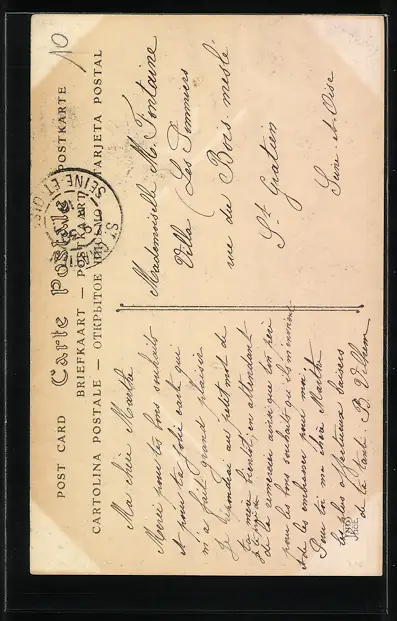 10
POST CARD Carte Postale POSTKARTE
BRIEFKAART — POSTKAART
CARTOLINA POSTALE — ОТКРЫТОЕ ПИСЬМО TARJETA POSTAL
SEINE-ET-OISE
Ma chère Marthe
Merci pour tes bons souhaits
et pour ta jolie carte qui
m'a fait grand plaisir
Je répondrai au petit mot de
ta mère bientôt, en attendant
je te prie de
la remercier ainsi que ton père
pour les bons souhaits qu'ils m'envoient
et de les embrasser pour moi.
Pour toi ma chère Marthe
les plus affectueux baisers
de ta tante. B.
ND
PHOT
Mademoiselle M. Fontaine
Villa (Les Pommiers
rue du Bois meslé
St. Gratien
Seine-et-Oise